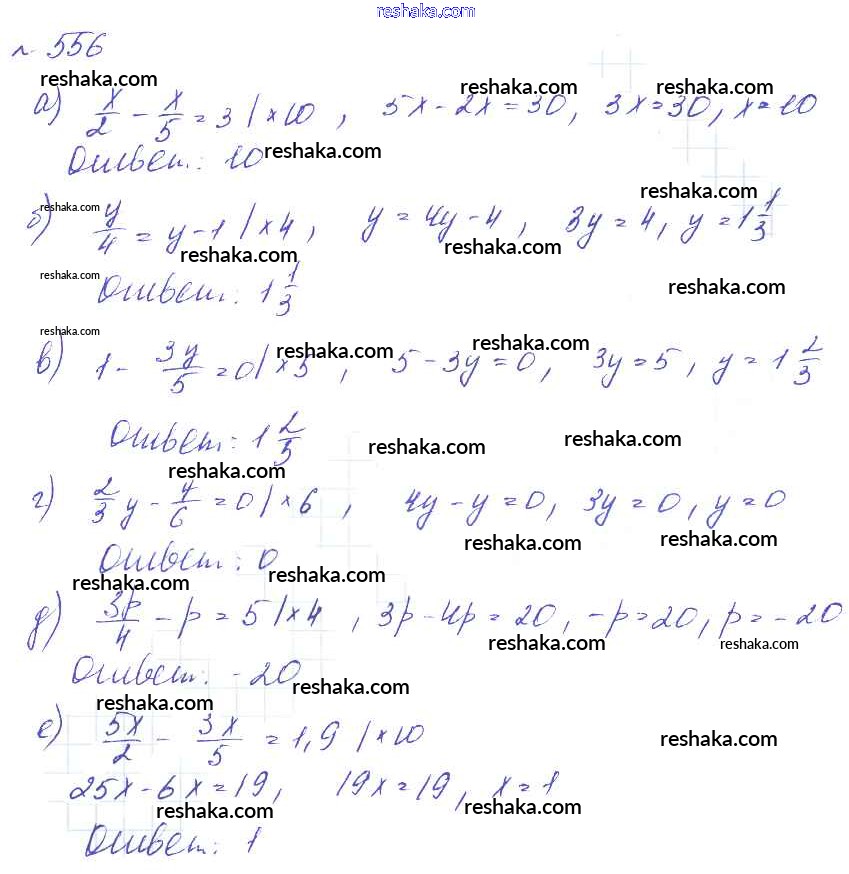 reshaka.com
№ 556
reshaka.com reshaka.com reshaka.com
а) x/2 - x/5 = 3 | ×10, 5x - 2x = 30, 3x = 30, x = 10
Ответ: 10 reshaka.com
reshaka.com reshaka.com
б) y/4 = y - 1 | ×4, y = 4y - 4, 3y = 4, y = 1 1/3
reshaka.com reshaka.com
Ответ: 1 1/3 reshaka.com
reshaka.com reshaka.com reshaka.com
в) 1 - 3y/5 = 0 | ×5, 5 - 3y = 0, 3y = 5, y = 1 2/3
Ответ: 1 2/3 reshaka.com reshaka.com
reshaka.com
г) 2/3 y - y/6 = 0 | ×6, 4y - y = 0, 3y = 0, y = 0
reshaka.com reshaka.com
Ответ: 0
reshaka.com reshaka.com
д) 3p/4 - p = 5 | ×4, 3p - 4p = 20, -p = 20, p = -20
reshaka.com reshaka.com
Ответ: -20 reshaka.com
reshaka.com
е) 5x/2 - 3x/5 = 1,9 | ×10 reshaka.com
25x - 6x = 19, 19x = 19, x = 1
reshaka.com reshaka.com
Ответ: 1